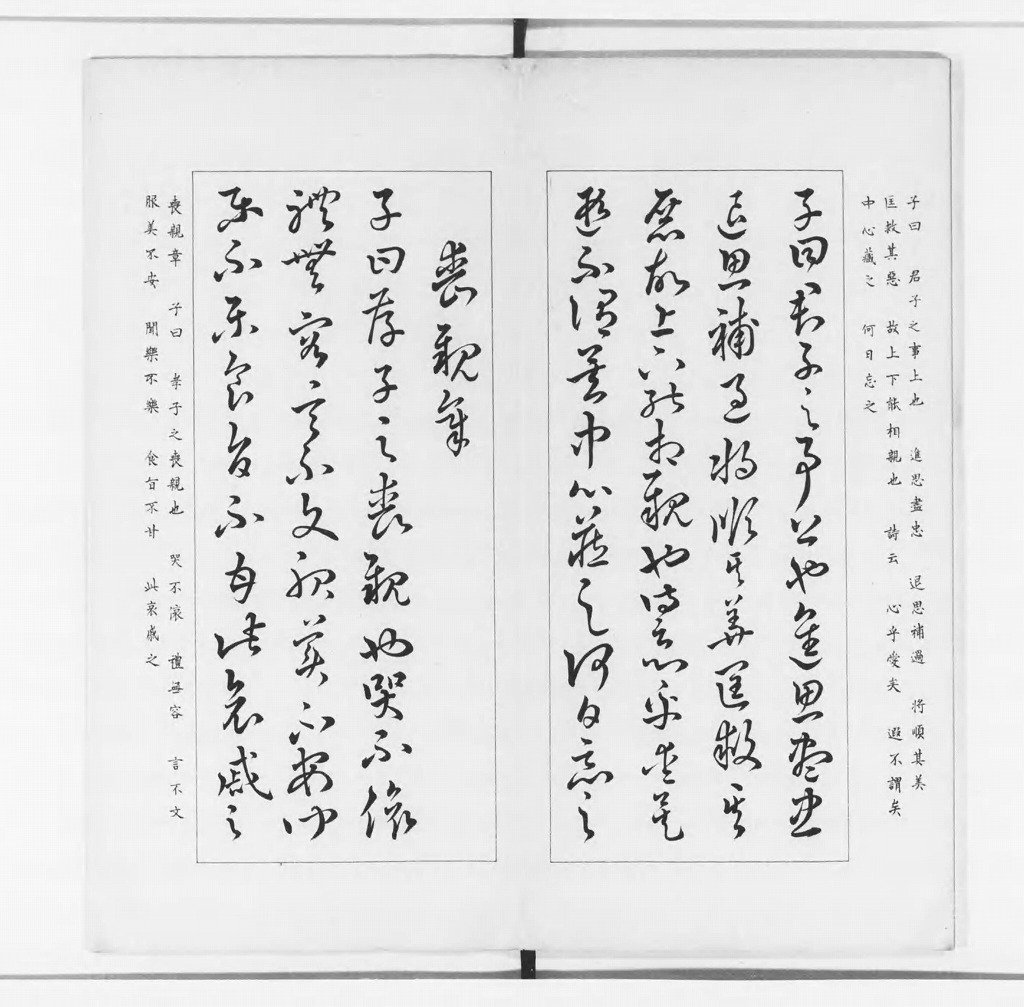 子曰 君子之事上也 進思盡忠 退思補過 将順其美
匡救其惡 故上下能相親也 詩云 心乎愛矣 遐不謂矣
中心藏之 何日忘之
子曰君子之事上也進思盡忠
退思補過将順其美匡救其
惡故上下能相親也詩云心乎愛矣
遐不謂矣中心藏之何日忘之
喪親章
子曰孝子之喪親也哭不偯
禮無容言不文服美不安聞
樂不樂食旨不甘此哀戚之
喪親章 子曰 孝子之喪親也 哭不偯 禮無容 言不文
服美不安 聞樂不樂 食旨不甘 此哀戚之